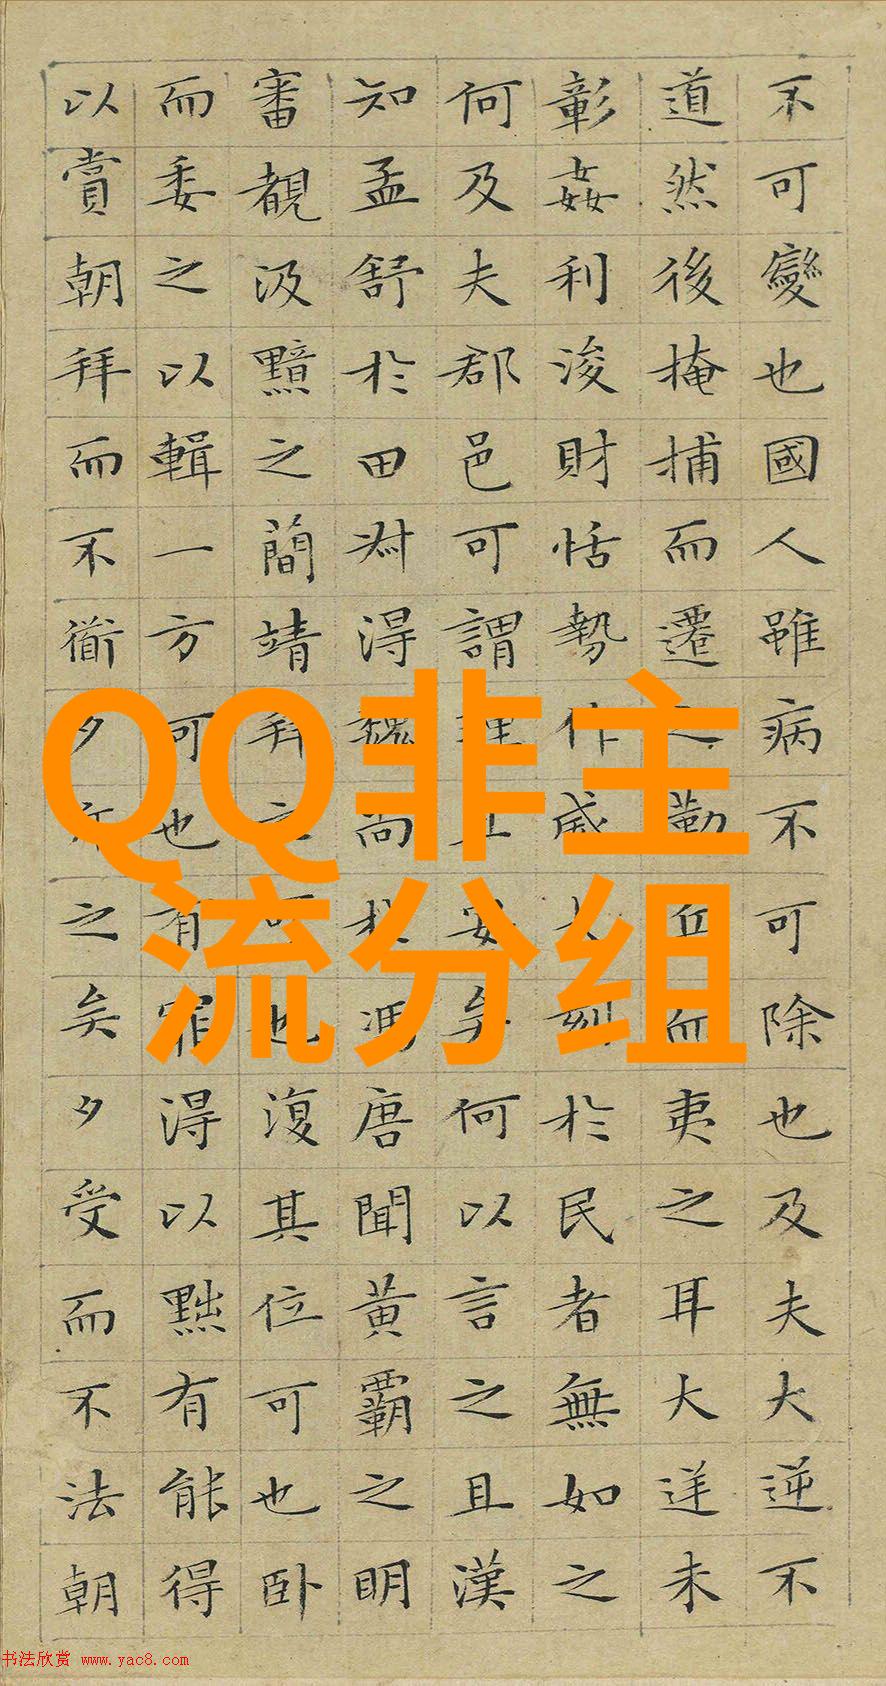 不可變也國人雖病不可除也及夫大逆不
道然後掩捕而遷之勒兵而夷之耳大逆未
彰姦利浚財怙勢作威大刻於民者無如之
何及夫郡邑可謂理且安矣何以言之且漢
知孟舒於田叔得魏尚於馮唐聞黃霸之明
審覩汲黯之簡靖拜之可也復其位可也臥
而委之以輯一方可也有罪得以黜有能得
以賞朝拜而不衜夕斥之矣夕受而不法朝
QQ非主
流分组
书法欣赏 www.yac8.com